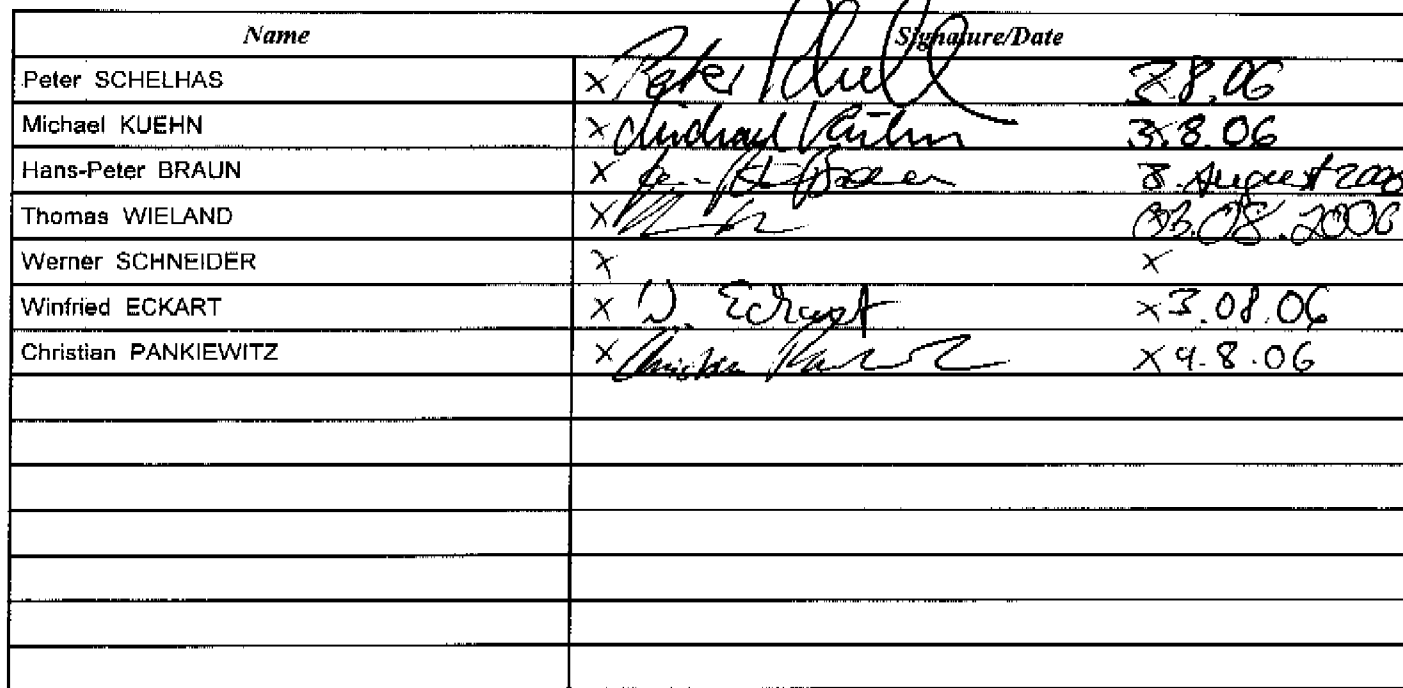 Name Signature/Date
Peter SCHELHAS × Peter 3.8.06
Michael KUEHN × Michael Kühn 3.8.06
Hans-Peter BRAUN × 3. August 2006
Thomas WIELAND × 03.08.2006
Werner SCHNEIDER × ×
Winfried ECKART × W. Eckart × 3.08.06
Christian PANKIEWITZ × Christian × 9.8.06